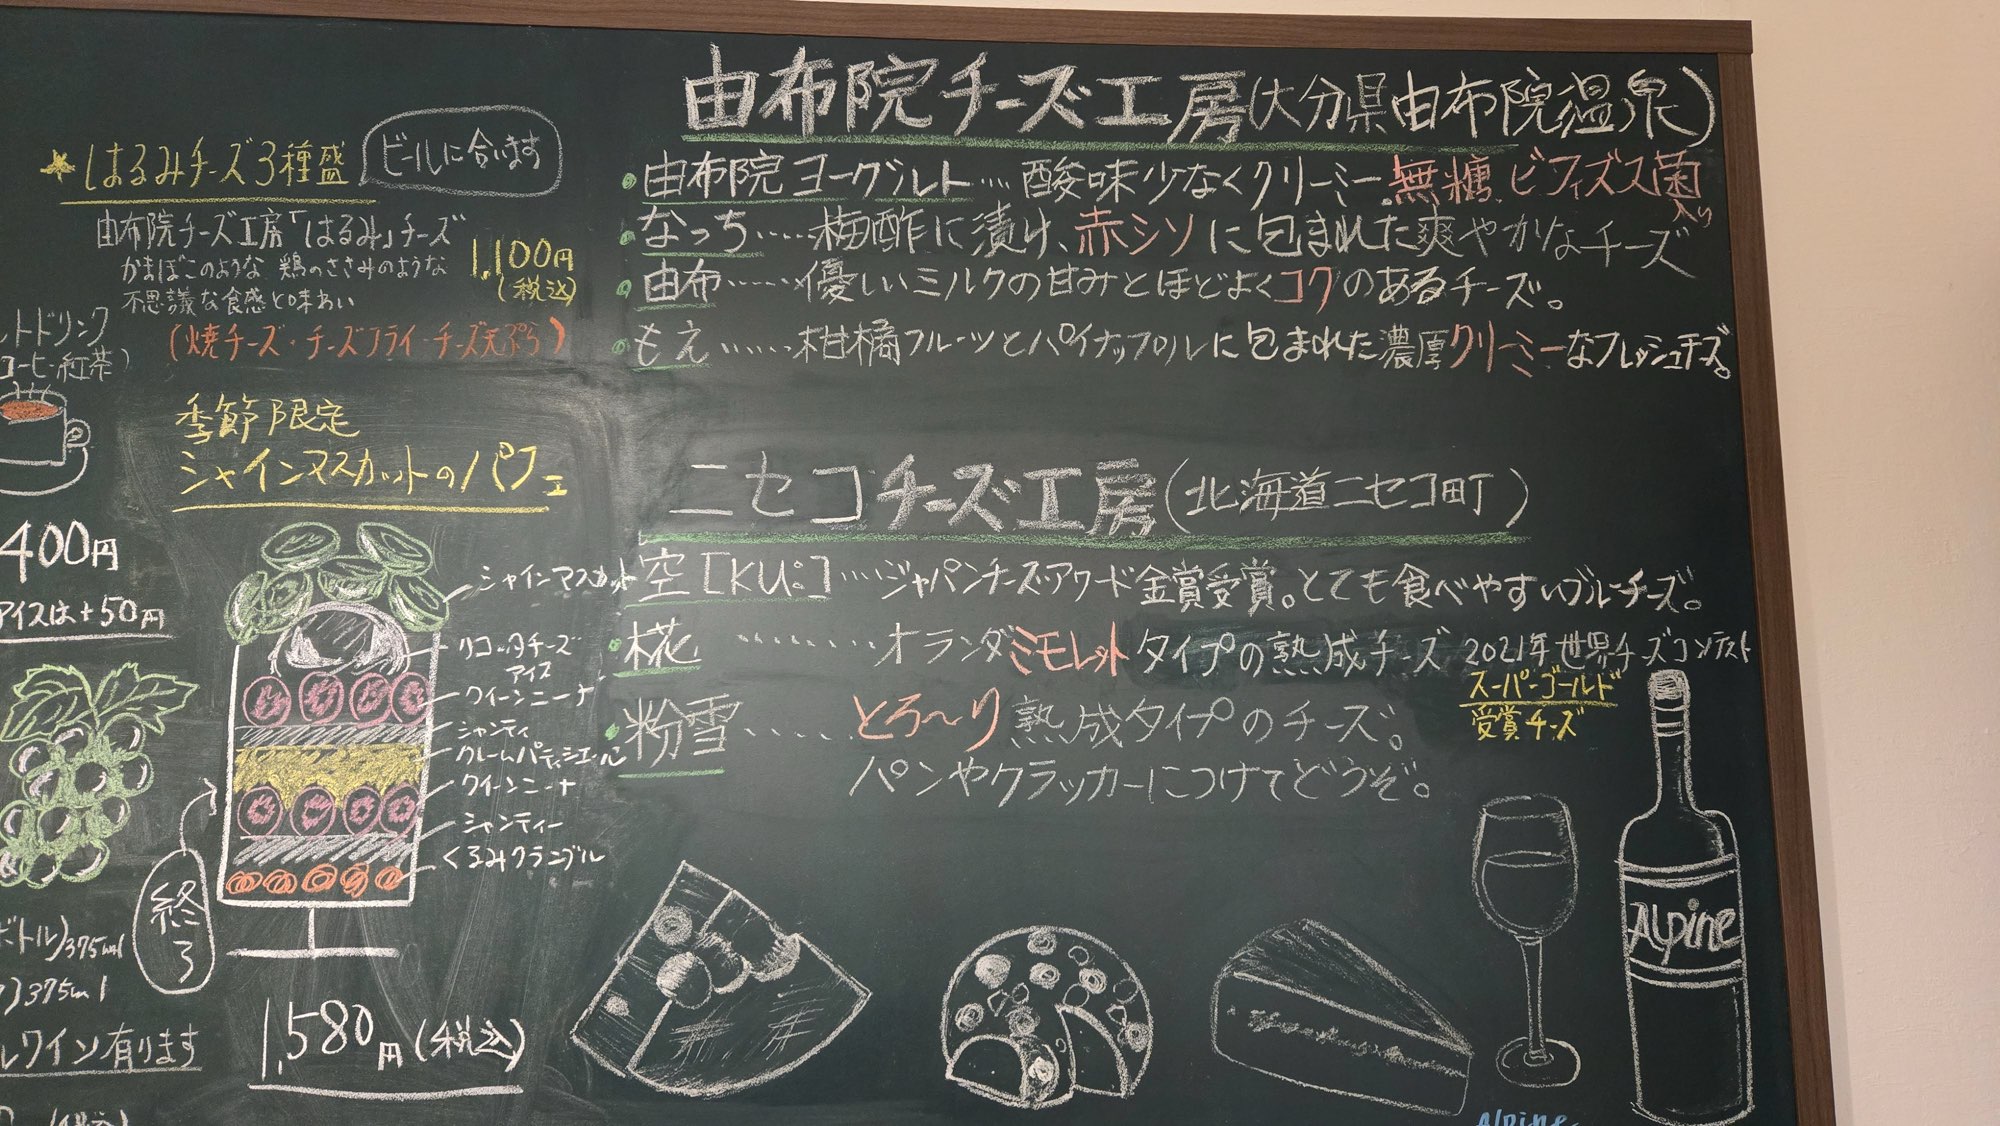 ★はるみチーズ3種盛
ビールに合います
由布院チーズ工房「はるみ」チーズ
かまぼこのような 鶏のささみのような
不思議な食感と味あい
1,100円
(税込)
(焼チーズ・チーズフライ・チーズ天ぷら)
ットドリンク
コーヒー・紅茶)
400円
アイスは+50円
季節限定
シャインマスカットのパフェ
シャインマスカット
リコッタチーズ
アイス
クイーンニーナ
シャンティ
クレームパティシエール
クイーンニーナ
シャンティー
くるみクランブル
終了
1,580円(税込)
ボトル)375ml
)375ml
ルワイン有ります
由布院チーズ工房(大分県由布院温泉)
・由布院ヨーグルト....酸味少なくクリーミー.無糖.ビフィズス菌入り
・なっち.....梅酢に漬け、赤シソに包まれた爽やかなチーズ
・由布......優しいミルクの甘みとほどよくコクのあるチーズ。
・もえ......柑橘フルーツとパイナップルに包まれた濃厚クリーミーなフレッシュチーズ。
ニセコチーズ工房(北海道ニセコ町)
空[ku:]....ジャパンチーズ・アワード金賞受賞。とても食べやすいブルーチーズ。
・椛........オランダミモレットタイプの熟成チーズ 2021年世界チーズコンテスト
スーパーゴールド
受賞チーズ
・粉雪.....とろ〜り熟成タイプのチーズ。
パンやクラッカーにつけてどうぞ。
Alpine
Alpine